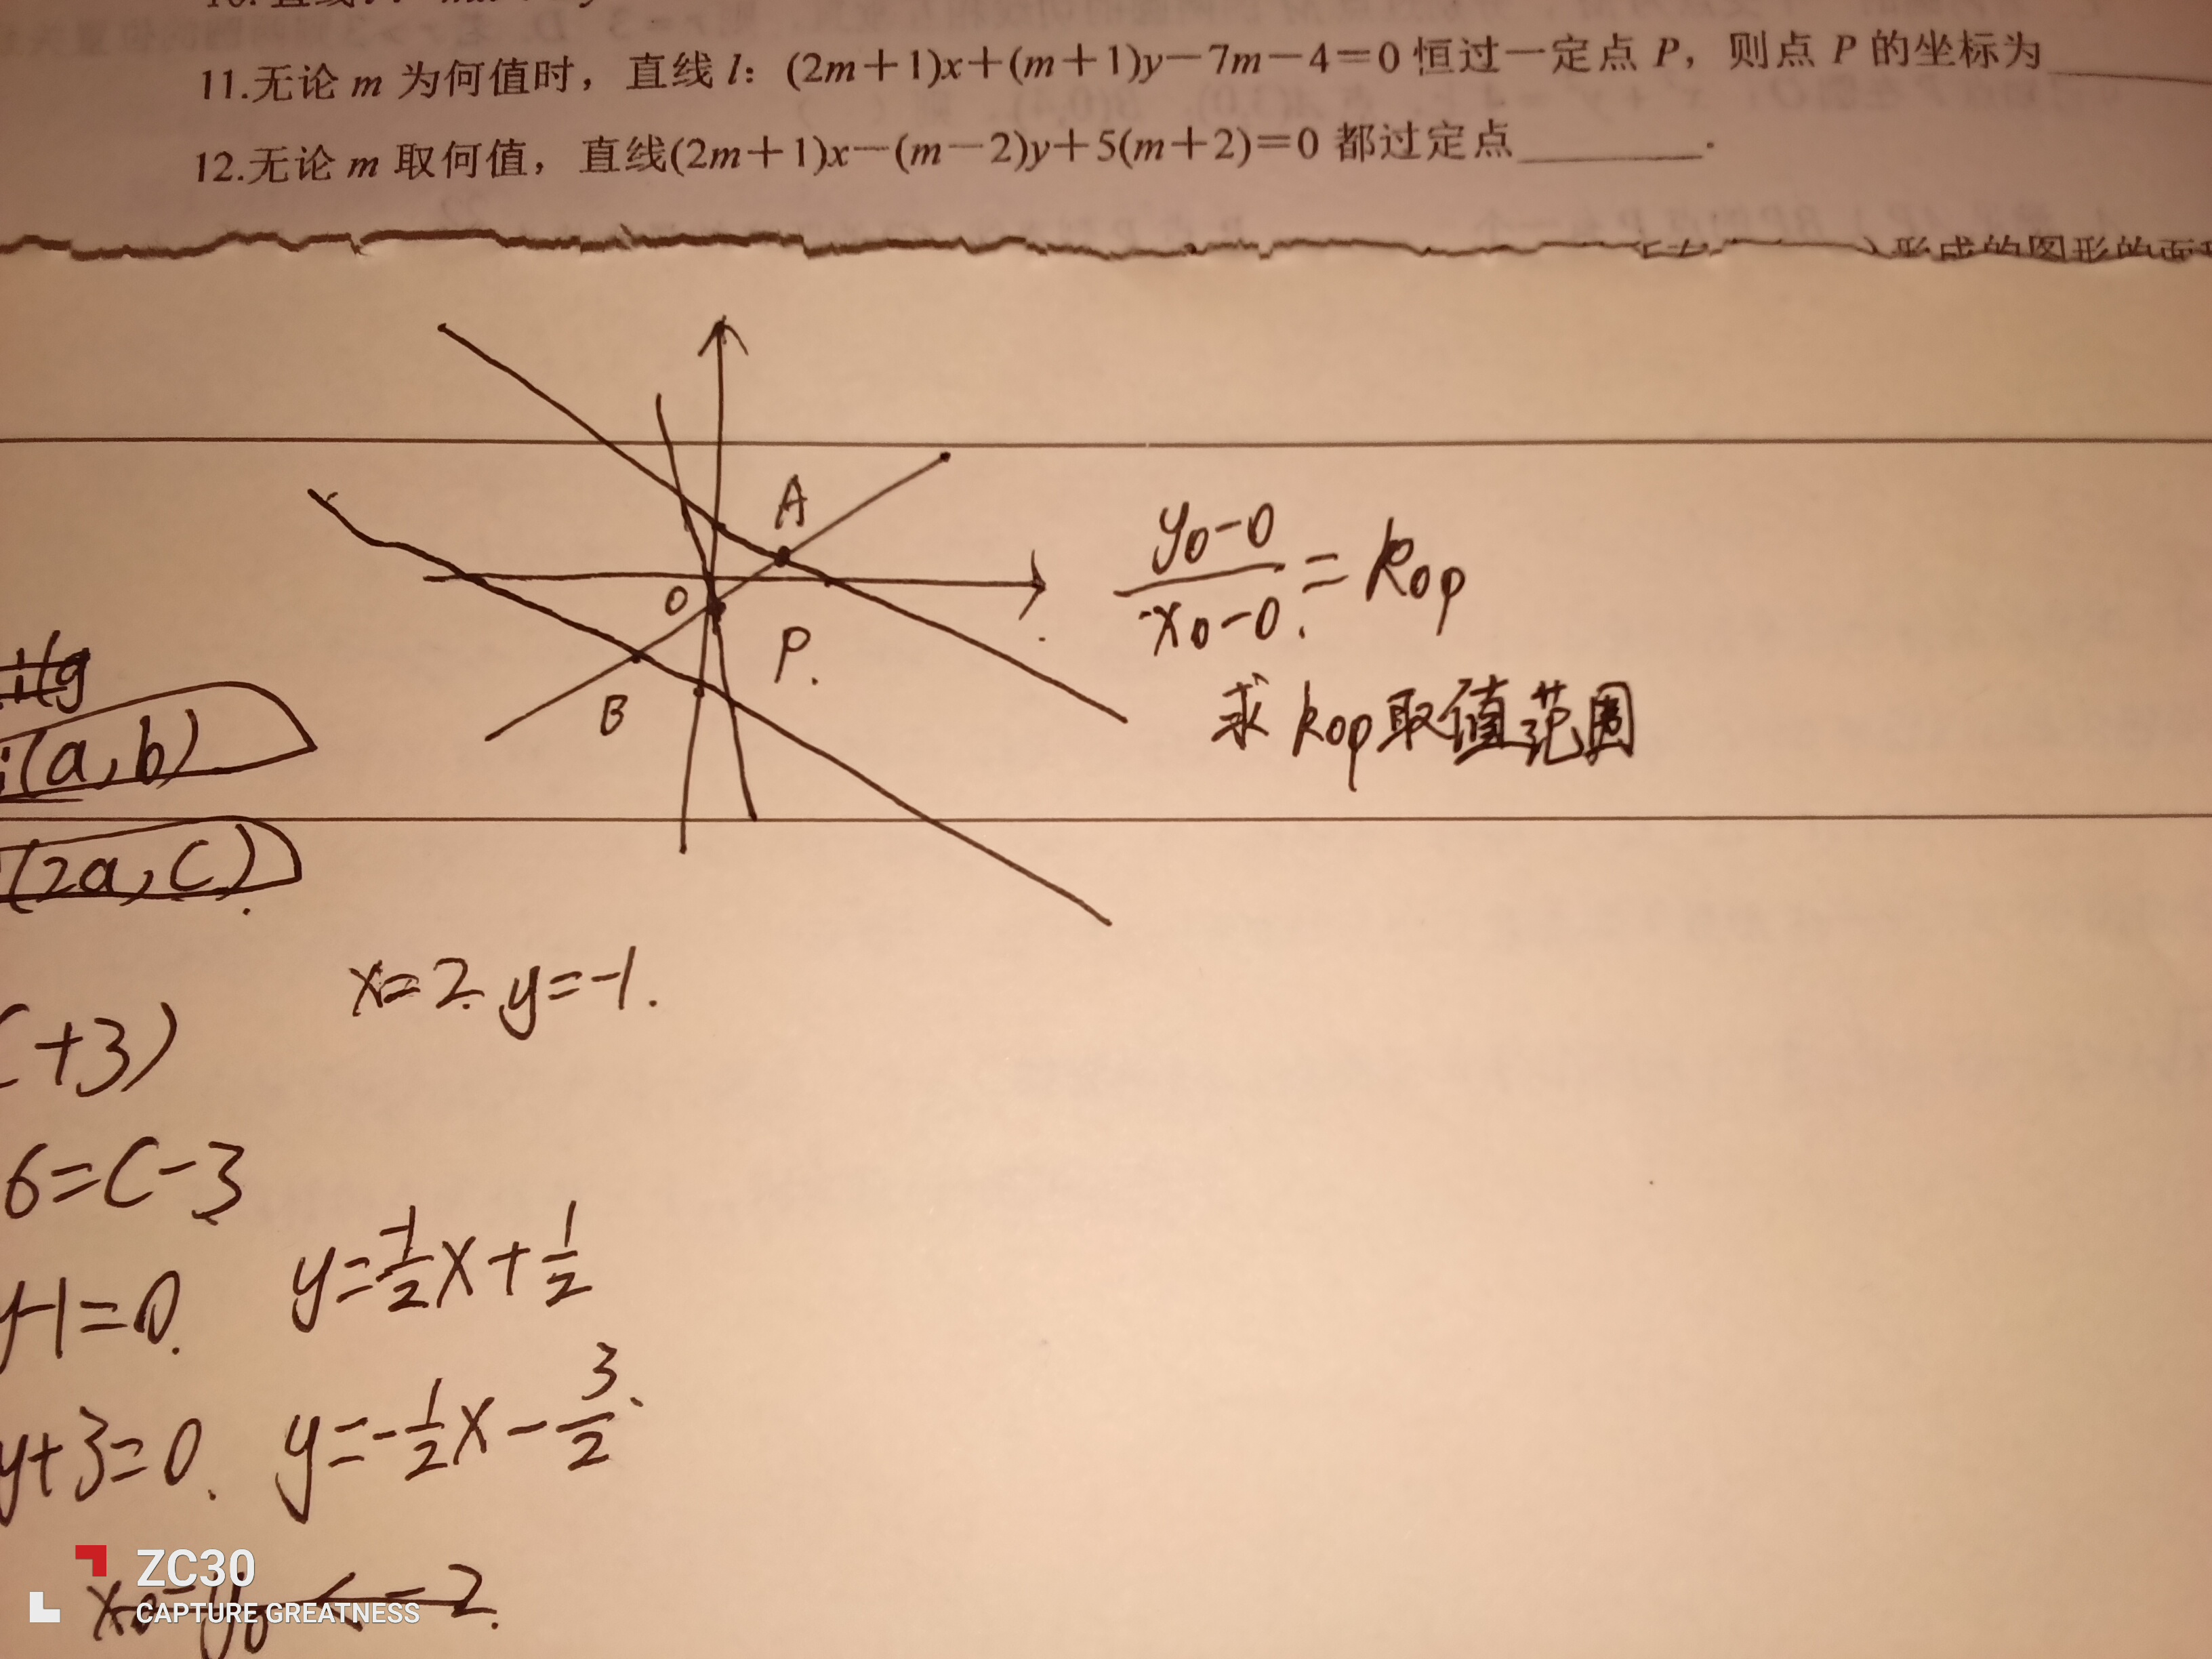 11.无论 m 为何值时，直线 l：(2m＋1)x＋(m＋1)y－7m－4＝0 恒过一定点 P，则点 P 的坐标为
12.无论 m 取何值，直线(2m＋1)x－(m－2)y＋5(m＋2)＝0 都过定点________.
形成的图形的面
A
O
P.
B
y₀-0/x₀-0=kop
求kop取值范围
(a,b)
(2a,c)
x=2 y=-1.
+3)
6=C-3
y-1=0. y=-1/2x+1/2
y+3=0. y=-1/2x-3/2.
ZC30
CAPTURE GREATNESS